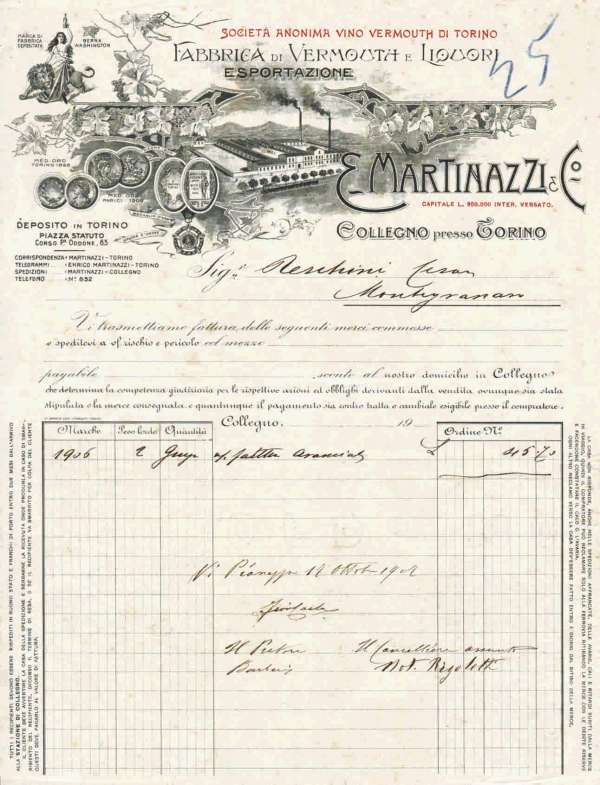 SOCIETÀ ANONIMA VINO VERMOUTH DI TORINO
FABBRICA DI VERMOUTH E LIQUORI
ESPORTAZIONE
MARCA DI FABBRICA DEPOSITATA
BERNA WASHINGTON
25
MED. ORO TORINO 1898
MED. ORO PARIGI 1900
E. MARTINAZZI & Co.
CAPITALE L. 900.000 INTER. VERSATO.
COLLEGNO presso TORINO
DEPOSITO IN TORINO
PIAZZA STATUTO
CORSO Pe. ODDONE, 63
CORRISPONDENZA: MARTINAZZI - TORINO
TELEGRAMMI: ENRICO MARTINAZZI - TORINO
SPEDIZIONI: MARTINAZZI - COLLEGNO
TELEFONO No 8.52
Sigr. Reschini
Vi trasmettiamo fattura delle seguenti merci commesse
e speditevi a vs/ rischio e pericolo col mezzo
pagabile sconto al nostro domicilio in Collegno
che determina la competenza giudiziaria per le rispettive azioni ed obblighi derivanti dalla vendita ovunque sia stata
stipulata o la merce consegnata, e quantunque il pagamento sia contro tratta o cambiale esigibile presso il compratore.
Collegno, 19
Marche Peso lordo Quantità Ordine No
1906 2 £ 45.70
12 Ottobre
Il Pretore Il Cancelliere
Not. Rigoletti
TUTTI I RECIPIENTI DEVONO ESSERE RISPEDITI IN BUONO STATO E FRANCHI DI PORTO ENTRO DUE MESI DALL'ARRIVO
ALLA STAZIONE DI COLLEGNO.
IL CLIENTE DEVE AVVERTIRE LA CASA DELLA SPEDIZIONE E SERBARNE LA RICEVUTA ONDE PRODURLA IN CASO DI SMAR-
RIMENTO DEL RECIPIENTE. DECORSO IL TERMINE DI RESA, O SE IL RECIPIENTE VA SMARRITO PER COLPA DEL CLIENTE
QUESTI DEVE PAGARLO AL VALORE DI FATTURA.
LA CASA NON RISPONDE, ANCHE NELLE SPEDIZIONI AFFRANCATE, DELLE AVARIE, CALI E RITARDI SUBITI DALLA MERCE
IN VIAGGIO, QUINDI IL COMPRATORE PUÒ RECLAMARE SOLO ALLA FERROVIA RITIRANDO LA MERCE CON LE DEBITE RISERVE
E FACENDONE CONSTATARE IL CALO O L'AVARIA.
OGNI ALTRO RECLAMO VERSO LA CASA DEV'ESSERE FATTO ENTRO 5 GIORNI DAL RITIRO DELLA MERCE.